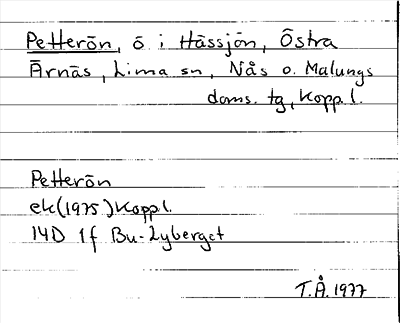 Petterön, ö i Hässjön, Östra
Ärnäs, Lima sn, Nås o. Malungs
doms. tg, Kopp.l.
Petterön
ek(1975)Kopp.l.
14D 1f Bu-Lyberget
T.Å.1977